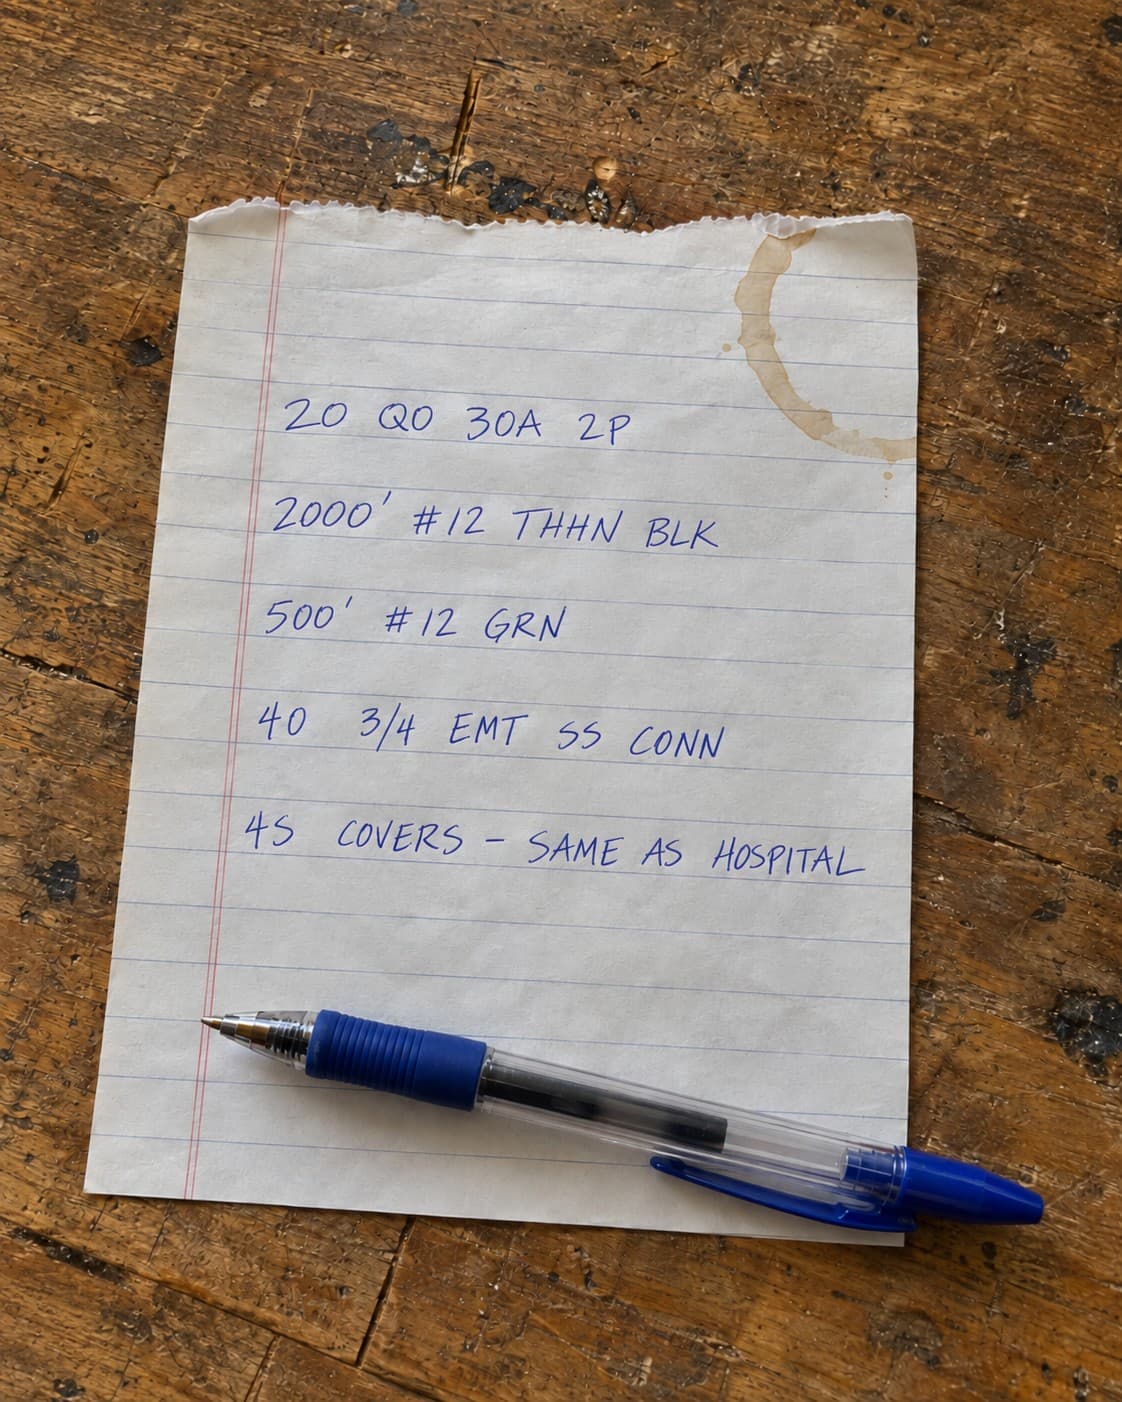 20 QO 30A 2P
2000' #12 THHN BLK
500' #12 GRN
40 3/4 EMT SS CONN
4S COVERS - SAME AS HOSPITAL